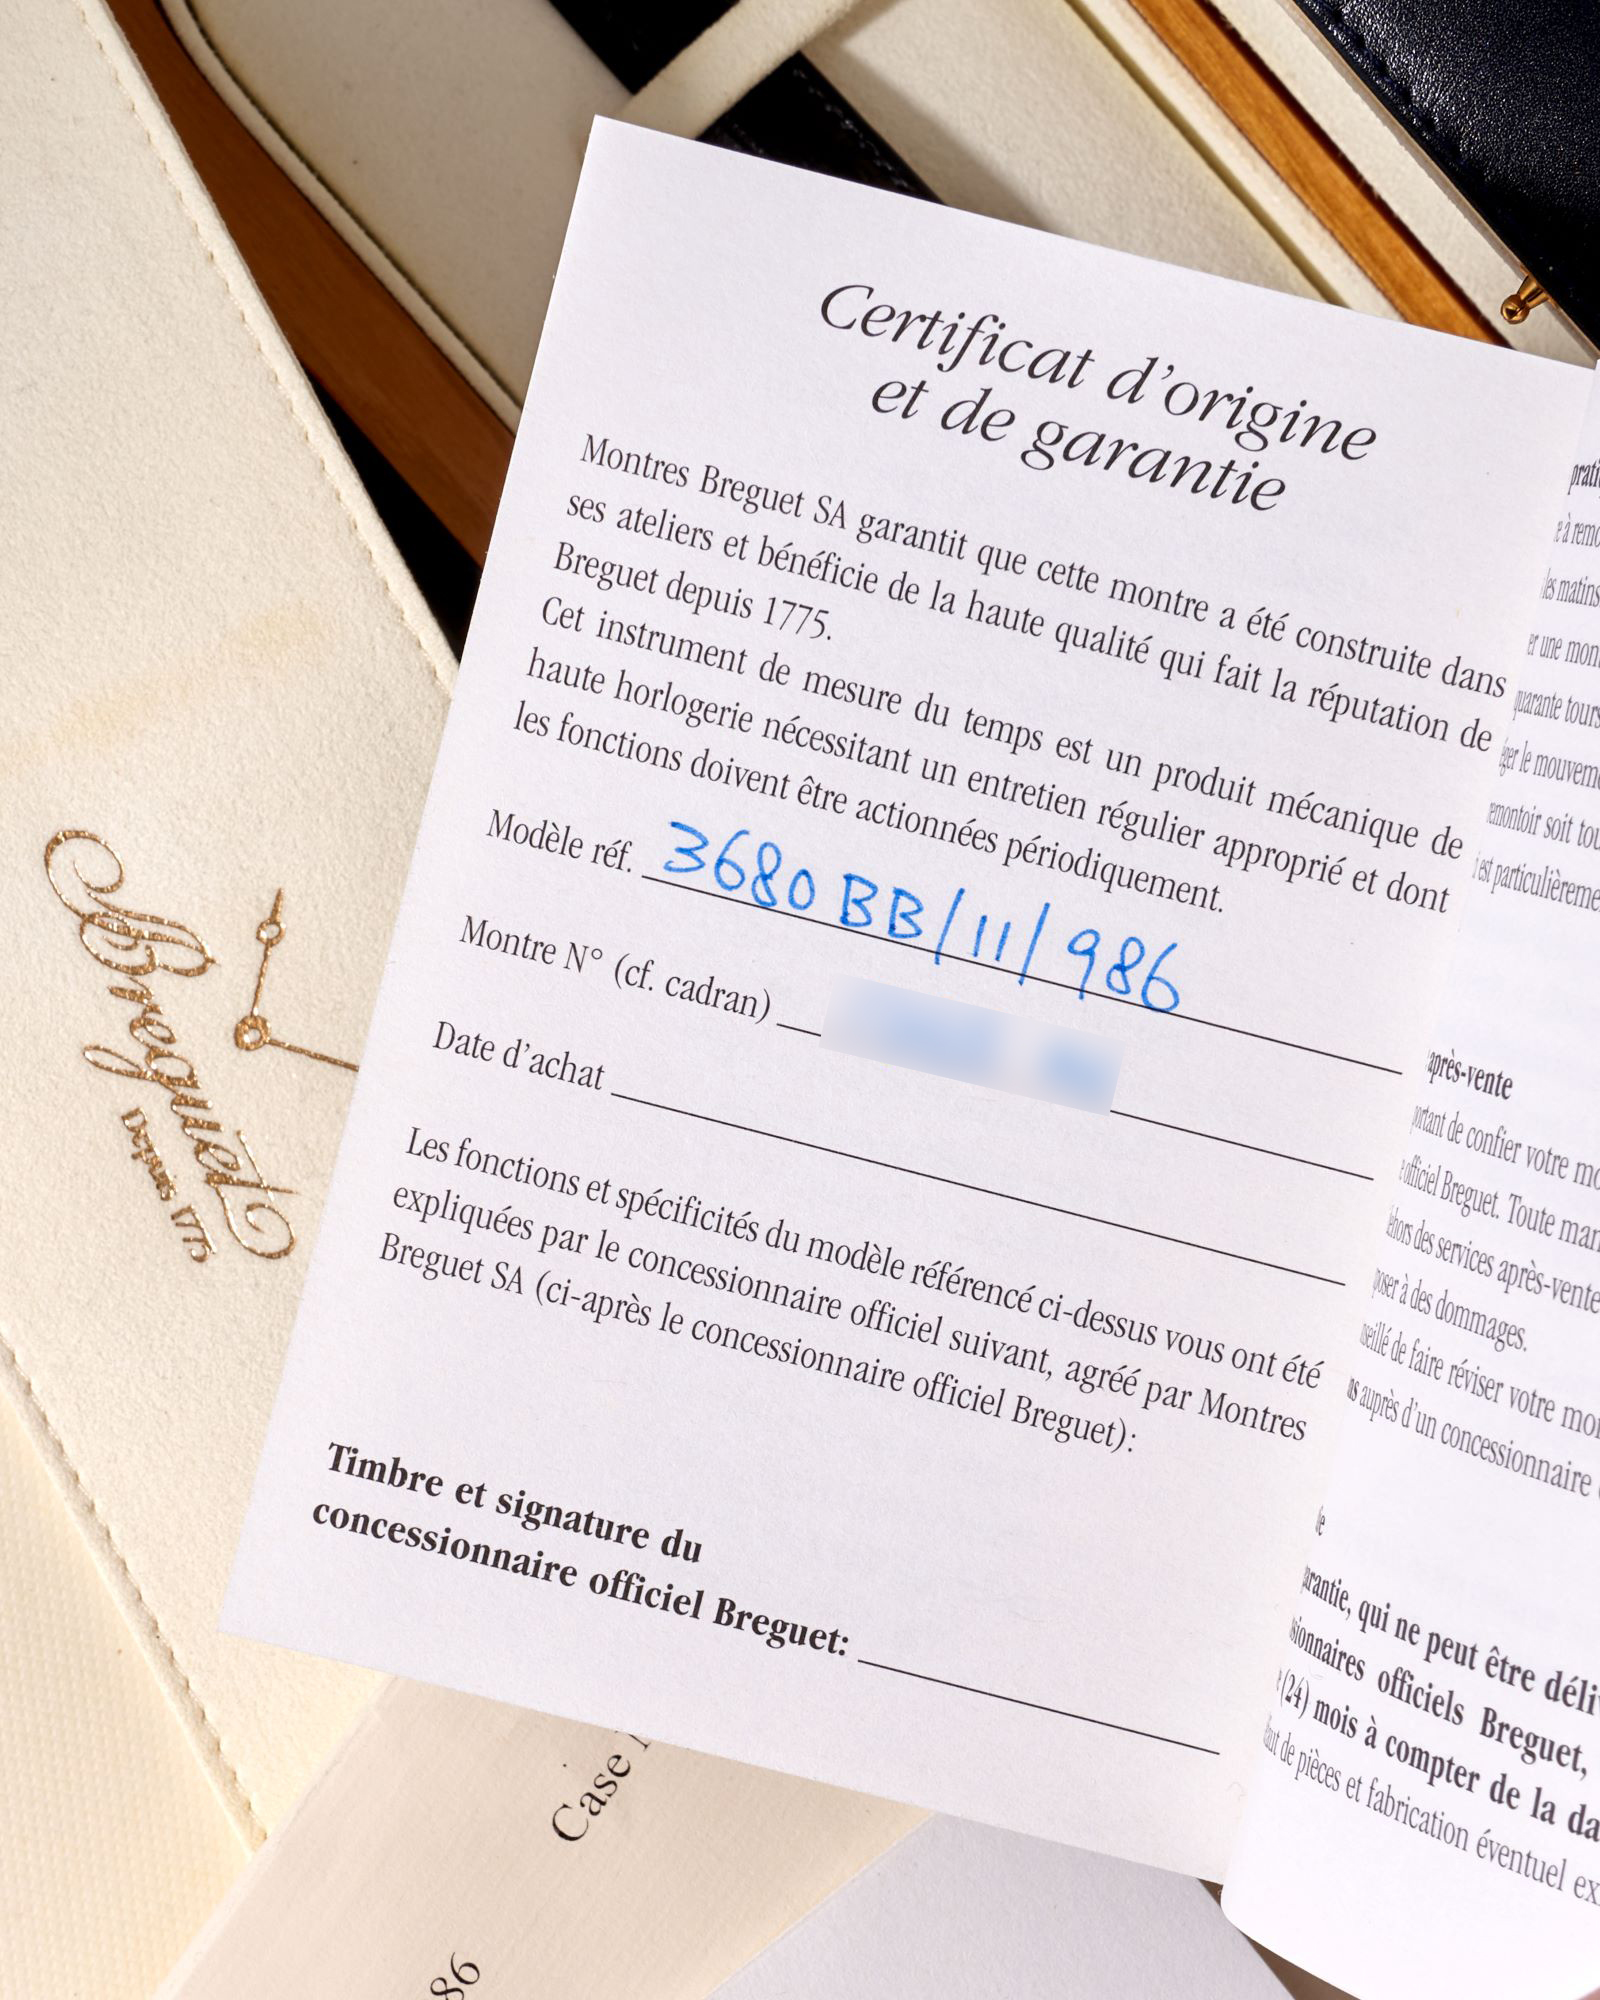 Certificat d'origine
et de garantie
Montres Breguet SA garantit que cette montre a été construite dans
ses ateliers et bénéficie de la haute qualité qui fait la réputation de
Breguet depuis 1775.
Cet instrument de mesure du temps est un produit mécanique de
haute horlogerie nécessitant un entretien régulier approprié et dont
les fonctions doivent être actionnées périodiquement.
Modèle réf. 3680 BB/11/986
Montre N° (cf. cadran)
Date d'achat
Les fonctions et spécificités du modèle référencé ci-dessus vous ont été
expliquées par le concessionnaire officiel suivant, agréé par Montres
Breguet SA (ci-après le concessionnaire officiel Breguet):
Timbre et signature du
concessionnaire officiel Breguet:
Breguet
Depuis 1775
les matins
une
tours
le
soit
est
après-vente
de confier votre
officiel Breguet. Toute
des services après-vente
à des dommages.
de faire réviser votre
auprès d'un concessionnaire
qui ne peut être
officiels Breguet,
(24) mois à compter de la
de pièces et fabrication éventuel
Case
86